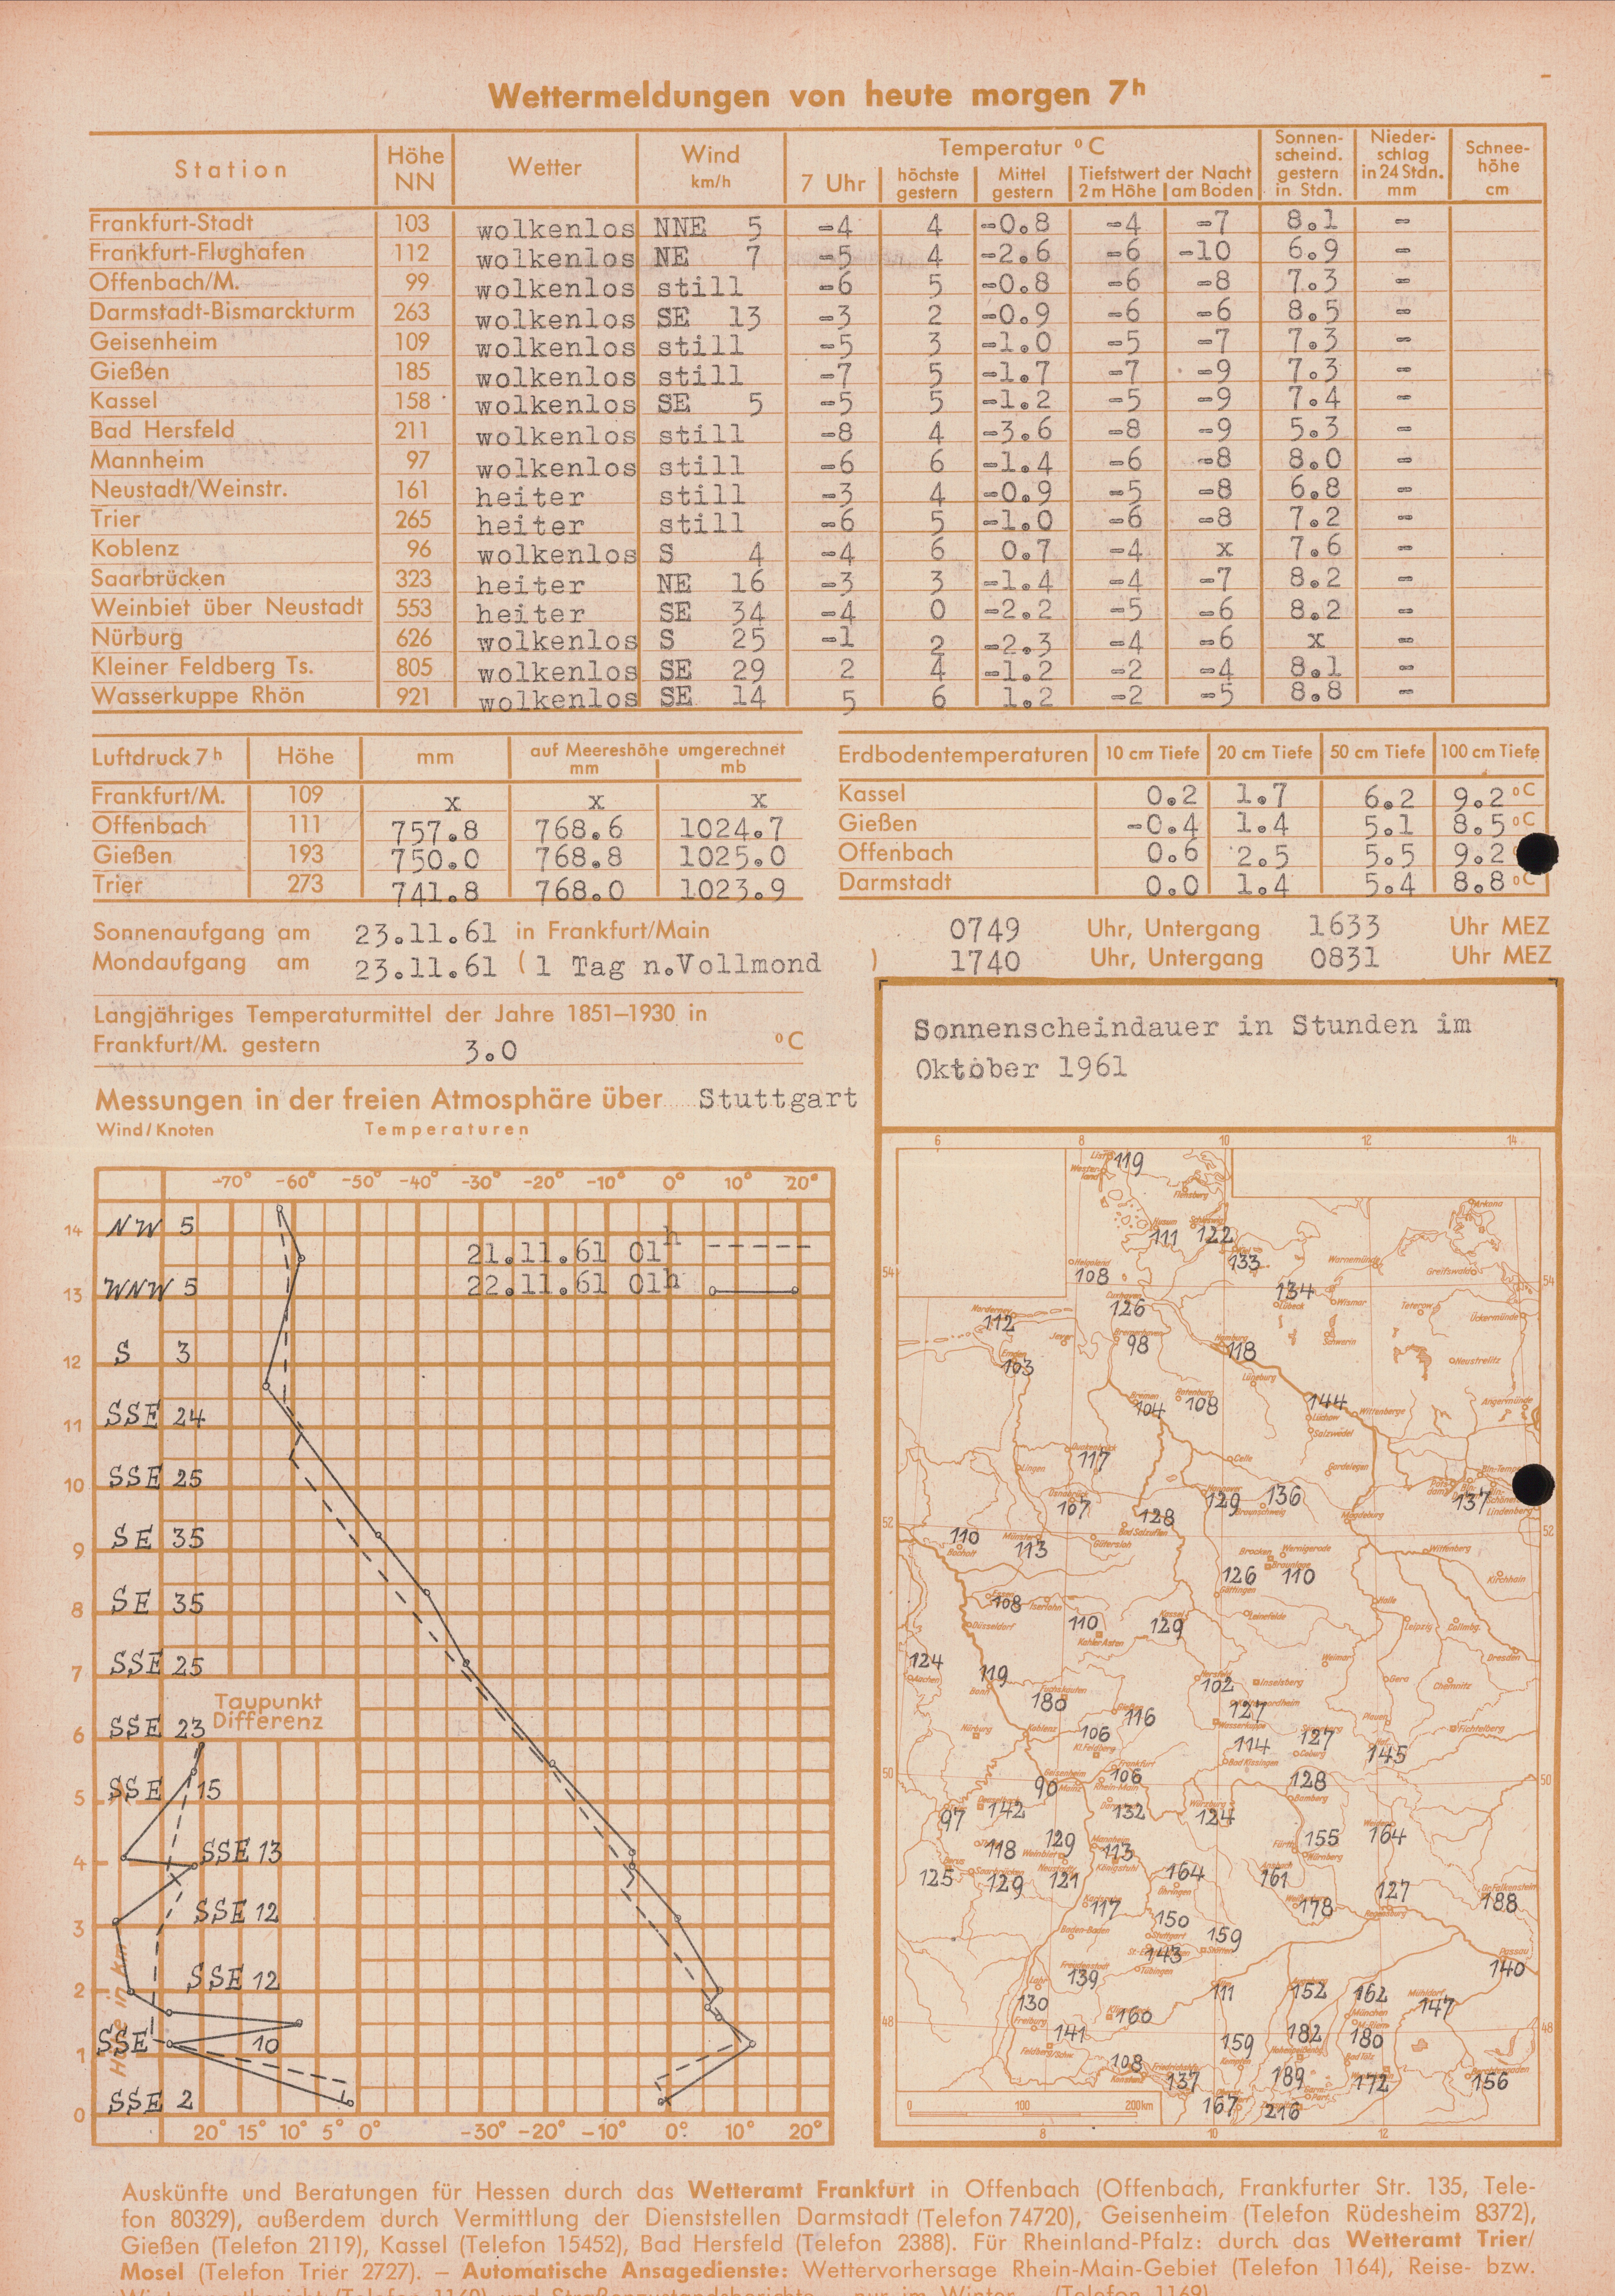 Wettermeldungen von heute morgen 7h
Station Höhe NN Wetter Wind km/h Temperatur °C 7 Uhr höchste gestern Mittel gestern Tiefstwert der Nacht 2 m Höhe am Boden Sonnen-scheind. gestern in Stdn. Nieder-schlag in 24 Stdn. mm Schnee-höhe cm
Frankfurt-Stadt 103 wolkenlos NNE 5 -4 4 -0.8 -4 -7 8.1 -
Frankfurt-Flughafen 112 wolkenlos NE 7 -5 4 -2.6 -6 -10 6.9 -
Offenbach/M. 99 wolkenlos still -6 5 -0.8 -6 -8 7.3 -
Darmstadt-Bismarckturm 263 wolkenlos SE 13 -3 2 -0.9 -6 -6 8.5 -
Geisenheim 109 wolkenlos still -5 3 -1.0 -5 -7 7.3 -
Gießen 185 wolkenlos still -7 5 -1.7 -7 -9 7.3 -
Kassel 158 wolkenlos SE 5 -5 5 -1.2 -5 -9 7.4 -
Bad Hersfeld 211 wolkenlos still -8 4 -3.6 -8 -9 5.3 -
Mannheim 97 wolkenlos still -6 6 -1.4 -6 -8 8.0 -
Neustadt/Weinstr. 161 heiter still -3 4 -0.9 -5 -8 6.8 -
Trier 265 heiter still -6 5 -1.0 -6 -8 7.2 -
Koblenz 96 wolkenlos S 4 -4 6 0.7 -4 x 7.6 -
Saarbrücken 323 heiter NE 16 -3 3 -1.4 -4 -7 8.2 -
Weinbiet über Neustadt 553 heiter SE 34 -4 0 -2.2 -5 -6 8.2 -
Nürburg 626 wolkenlos S 25 -1 2 -2.3 -4 -6 x -
Kleiner Feldberg Ts. 805 wolkenlos SE 29 2 4 -1.2 -2 -4 8.1 -
Wasserkuppe Rhön 921 wolkenlos SE 14 5 6 1.2 -2 -5 8.8 -
Luftdruck 7h Höhe mm auf Meereshöhe umgerechnet mm mb
Frankfurt/M. 109 x x x
Offenbach 111 757.8 768.6 1024.7
Gießen 193 750.0 768.8 1025.0
Trier 273 741.8 768.0 1023.9
Erdbodentemperaturen 10 cm Tiefe 20 cm Tiefe 50 cm Tiefe 100 cm Tiefe
Kassel 0.2 1.7 6.2 9.2 °C
Gießen -0.4 1.4 5.1 8.5 °C
Offenbach 0.6 2.5 5.5 9.2
Darmstadt 0.0 1.4 5.4 8.8 °C
Sonnenaufgang am 23.11.61 in Frankfurt/Main 0749 Uhr, Untergang 1633 Uhr MEZ
Mondaufgang am 23.11.61 (1 Tag n.Vollmond ) 1740 Uhr, Untergang 0831 Uhr MEZ
Langjähriges Temperaturmittel der Jahre 1851–1930 in
Frankfurt/M. gestern 3.0 °C
Messungen in der freien Atmosphäre über Stuttgart
Wind/Knoten Temperaturen
-70° -60° -50° -40° -30° -20° -10° 0° 10° 20°
14 NW 5
21.11.61 01h
22.11.61 01h
13 WNW 5
12 S 3
11 SSE 24
10 SSE 25
9 SE 35
8 SE 35
7 SSE 25
Taupunkt
Differenz
6 SSE 23
5 SSE 15
4 SSE 13
3 SSE 12
2 SSE 12
1 SSE 10
0 SSE 2
Höhe in km
20° 15° 10° 5° 0° -30° -20° -10° 0° 10° 20°
Sonnenscheindauer in Stunden im
Oktober 1961
6 8 10 12 14
119
Flensberg
Arkona
111 122
133
Helgoland 108
Warnemünde
Greifswald
54 54
134
Lübeck Wismar Teterow Ückermünde
Cuxhaven 126
Norderney 112
Jever 98
Hamburg 118
Schwerin
Emden 103
Neustrelitz
Lüneburg
Bremen 104 Rotenburg 108
144 Wittenberge Angermünde
Lüchow
Salzwedel
Quakenbrück 117
Lingen
Celle
Gardelegen
Osnabrück 107
129 136
Braunschweig
137
Lindenberg
128
Bad Salzuflen
Magdeburg
52 52
110
Bocholt
Münster 113
Gütersloh
Brocken Wernigerode
Braunlage
Wittenberg
126 110
Göttingen
Kirchhain
Essen 108 Iserlohn
Düsseldorf
110
Kahler Asten
Kassel 129
Leinefelde
Halle
Leipzig Collmbg.
124
Aachen
119
Bonn
180
Hersfeld 102
Inselsberg
Weimar
Gera
Chemnitz
Dresden
127
Wasserkuppe
116
Nürburg
Koblenz
106
Kl.Feldberg
114
Bad Kissingen
127
Coburg
Plauen
145
Fichtelberg
50 50
Geisenheim 90 Mainz
Frankfurt 106
Rhein-Main
128
Bamberg
97 142
132
Würzburg 124
118 129
Weinbiet
Mannheim 113
Königstuhl
155
Fürth Nürnberg
164
125
Saarbrücken 129
Neustadt 121
164
Öhringen
Ansbach 161
178
127
Regensburg
188
117
Baden-Baden
150
Stuttgart
143
159
Tübingen
Passau
140
Freudenstadt 139
Lahr
130
Freiburg
111
152 162
München
Mühldorf 147
160
48 48
141
Feldberg/Schw.
159
Kempten
182 180
Bad Tölz
108
Konstanz
Friedrichshfn. 137
189
172
Berchtesgaden
156
167 216
0 100 200 km
8 10 12
Auskünfte und Beratungen für Hessen durch das Wetteramt Frankfurt in Offenbach (Offenbach, Frankfurter Str. 135, Tele-
fon 80329), außerdem durch Vermittlung der Dienststellen Darmstadt (Telefon 74720), Geisenheim (Telefon Rüdesheim 8372),
Gießen (Telefon 2119), Kassel (Telefon 15452), Bad Hersfeld (Telefon 2388). Für Rheinland-Pfalz: durch das Wetteramt Trier/
Mosel (Telefon Trier 2727). – Automatische Ansagedienste: Wettervorhersage Rhein-Main-Gebiet (Telefon 1164), Reise- bzw.